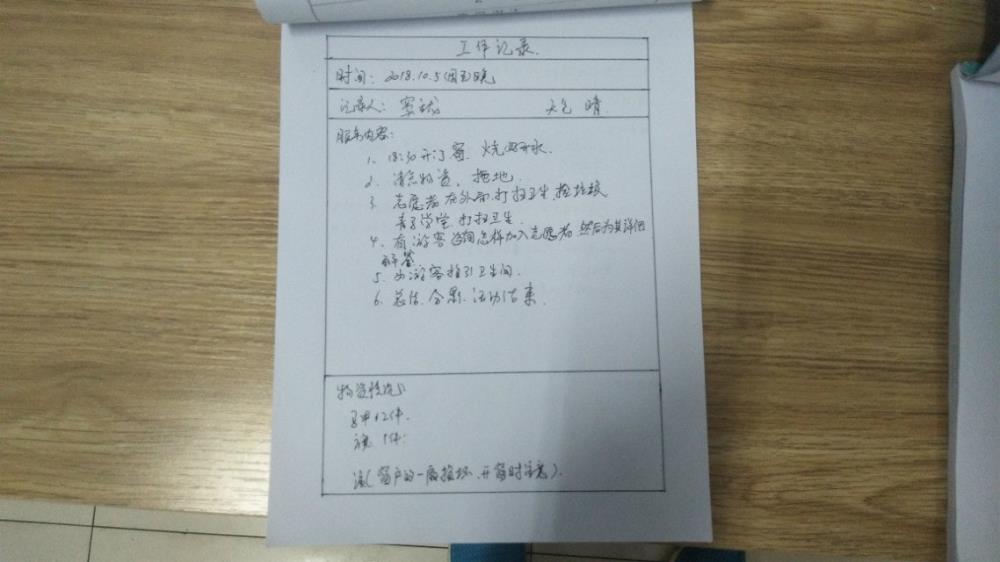 工作记录.
时间: 2018.10.5(周五)晚
记录人: 天气 晴
服务内容:
1. 18:30开门窗. 烧开水.
2. 清点物资, 拖地.
3. 志愿者在外面打扫卫生, 捡垃圾
学堂, 打扫卫生.
4. 有游客咨询怎样加入志愿者, 然后为其详细
解答
5. 为游客指引卫生间.
6. 总结. 合影. 活动结束.
物资情况:
马甲12件.
旗 1件.
注( 窗户的一扇损坏, 开窗时注意).